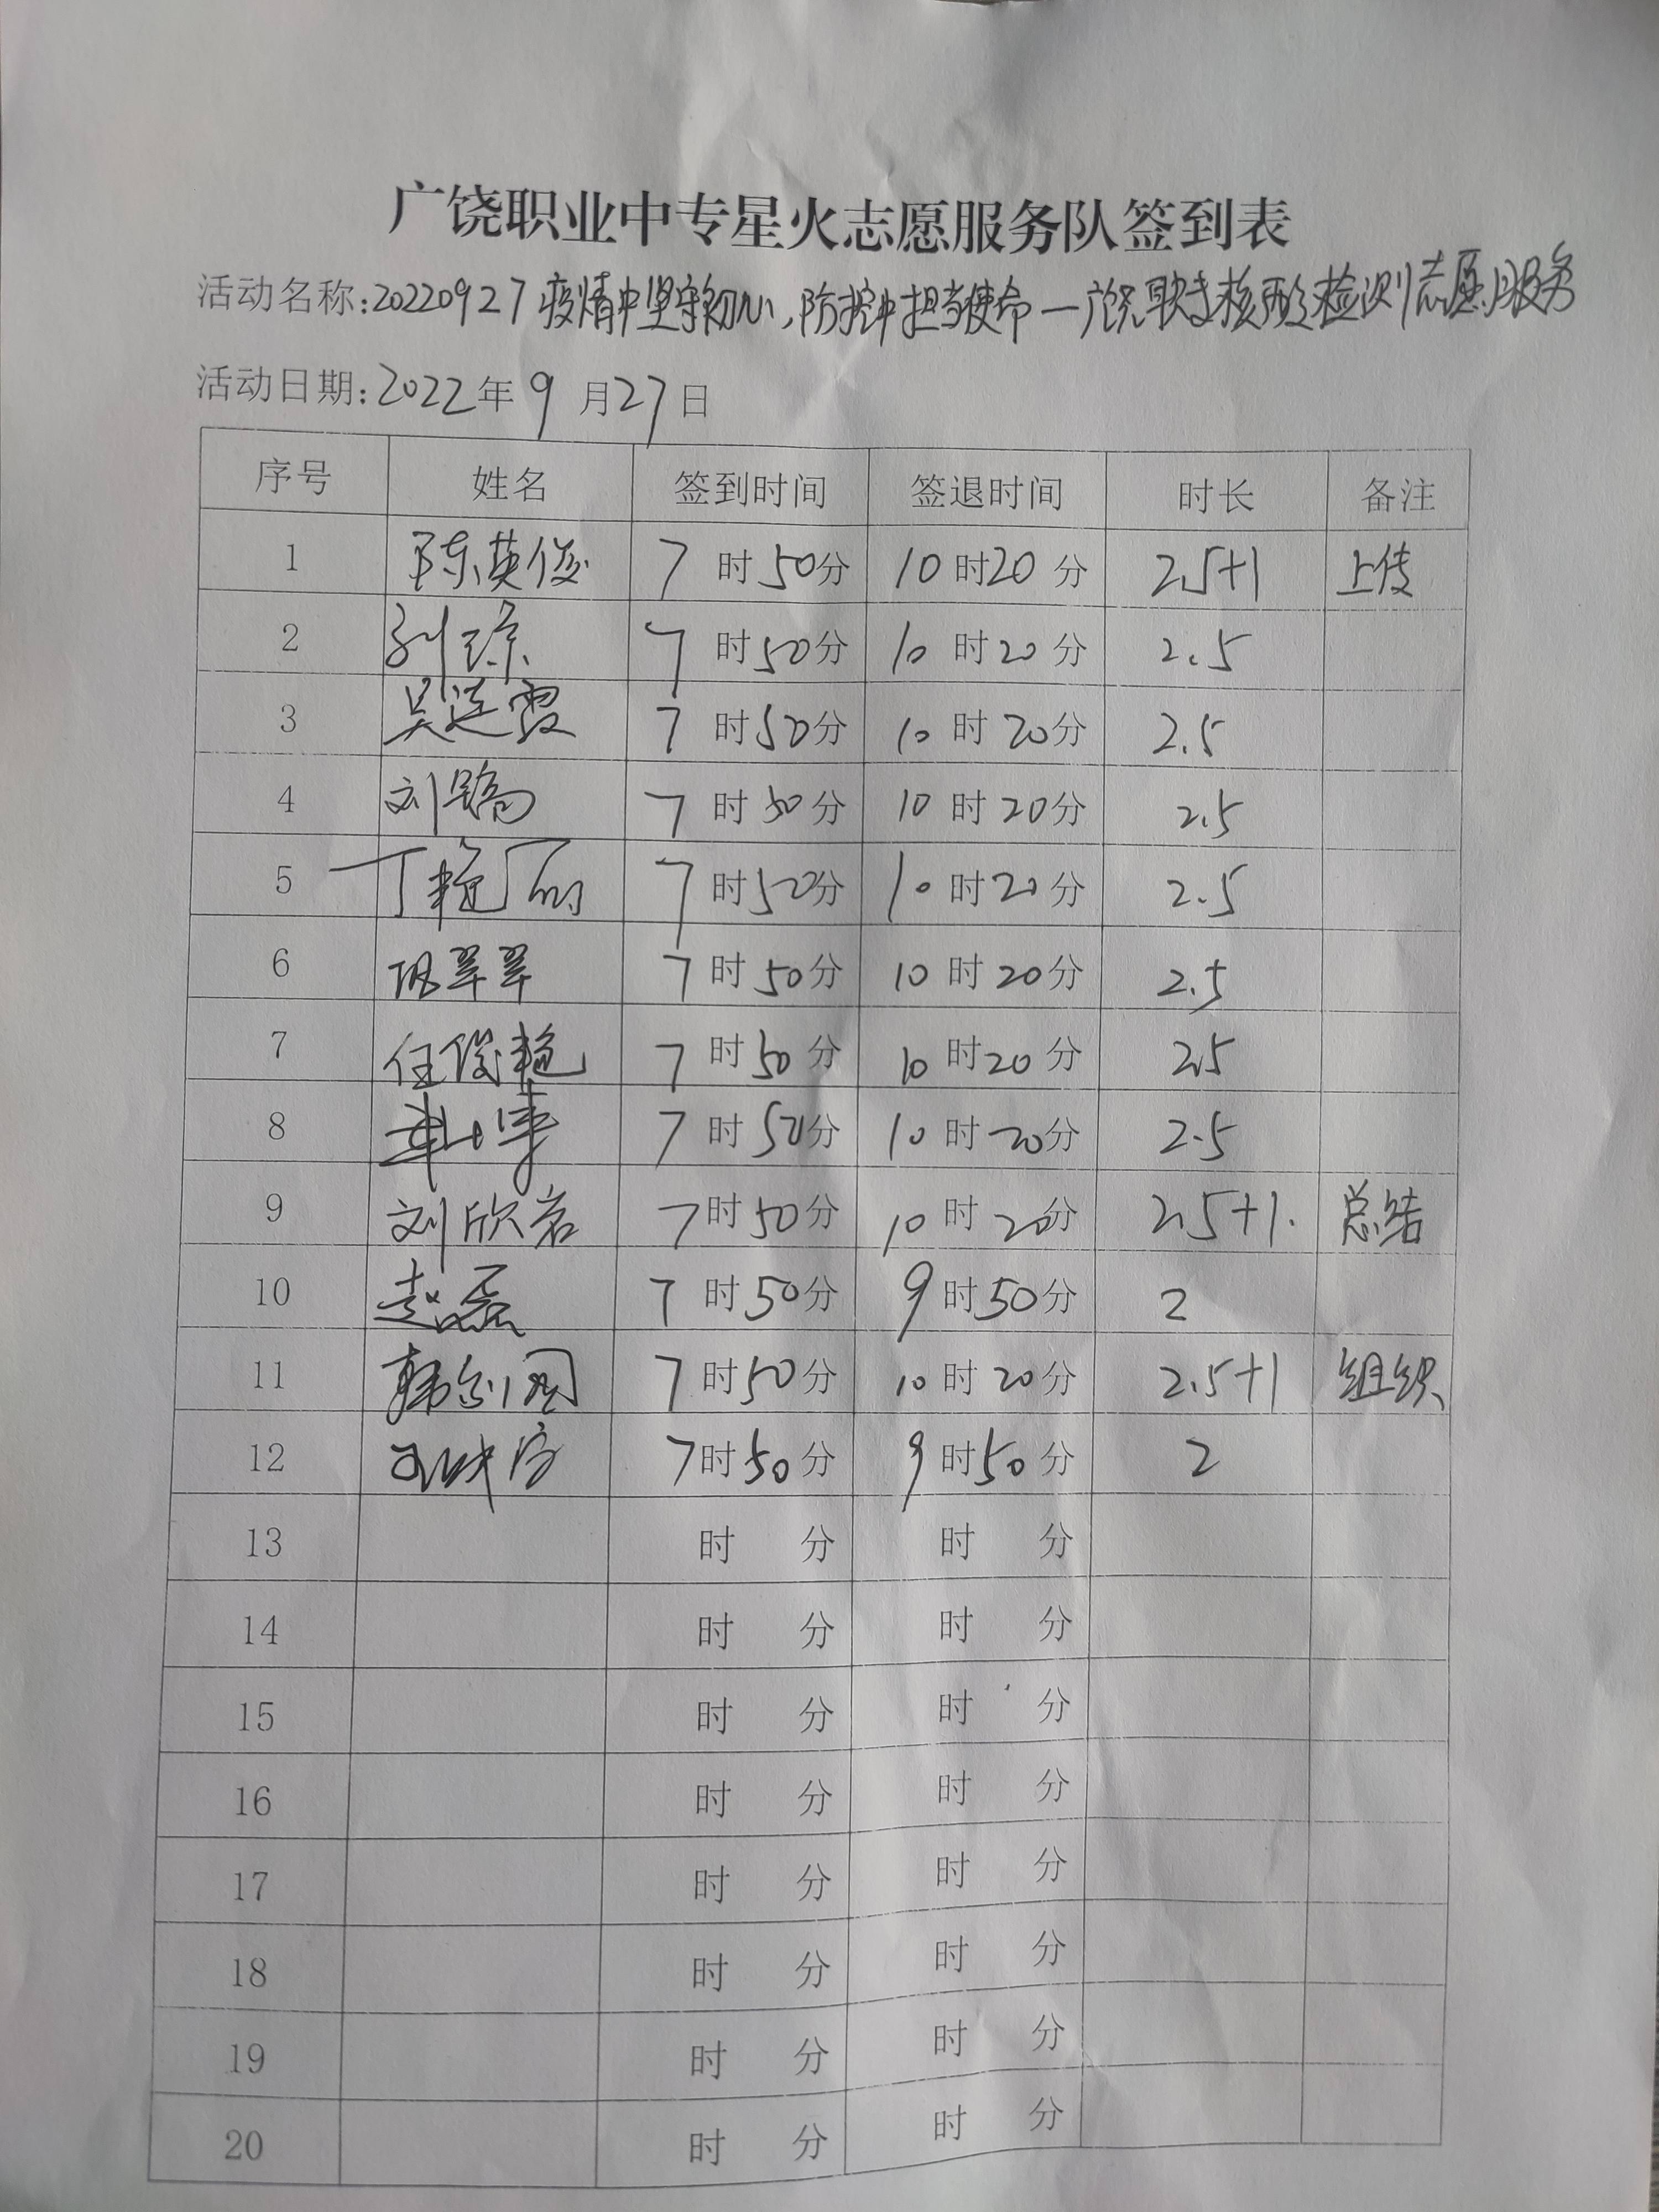 广饶职业中专星火志愿服务队签到表
活动名称:20220927疫情中坚守初心,防控中担当使命—广饶职专核酸检测志愿服务
活动日期:2022年9月27日
序号 姓名 签到时间 签退时间 时长 备注
1 陈英俊 7时50分 10时20分 2.5+1 上传
2 刘琼 7时50分 10时20分 2.5
3 吴连霞 7时50分 10时20分 2.5
4 刘 7时50分 10时20分 2.5
5 丁艳丽 7时50分 10时20分 2.5
6 翠翠 7时50分 10时20分 2.5
7 任俊艳 7时50分 10时20分 2.5
8 7时50分 10时20分 2.5
9 刘欣岩 7时50分 10时20分 2.5+1. 总结
10 赵磊 7时50分 9时50分 2
11 韩剑图 7时50分 10时20分 2.5+1 组织
12 7时50分 9时50分 2
13 时 分 时 分
14 时 分 时 分
15 时 分 时 分
16 时 分 时 分
17 时 分 时 分
18 时 分 时 分
19 时 分 时 分
20 时 分 时 分